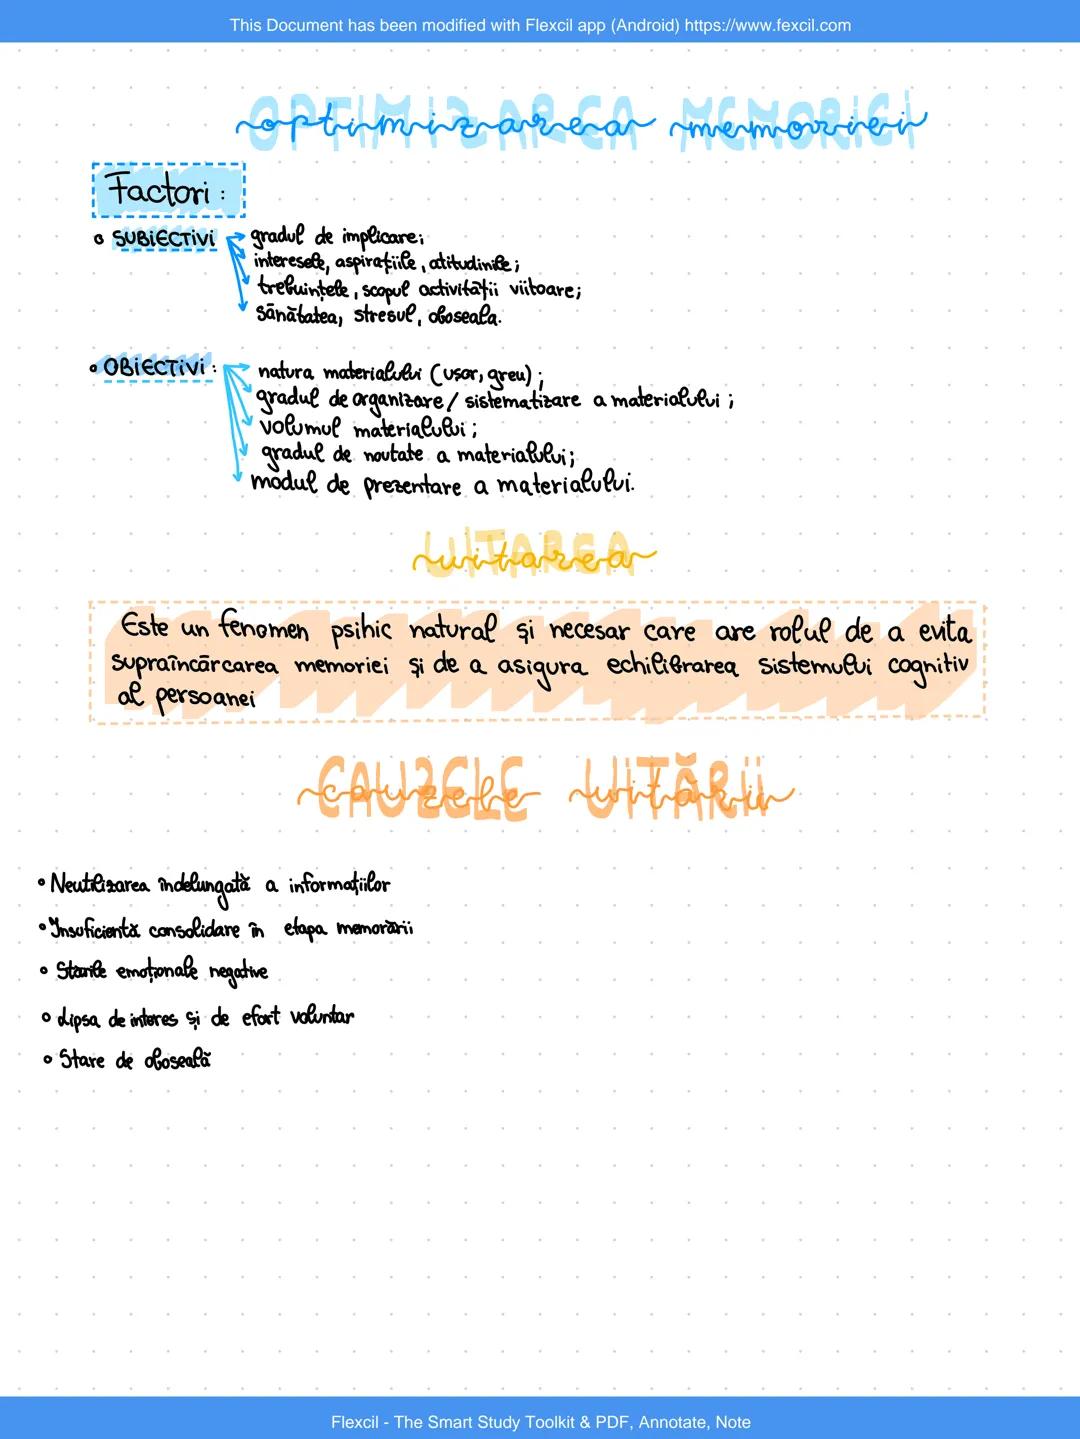 This Document has been modified with Flexcil app (Android) https://www.fexcil.com
OPTIMIZAREA MEMORIEI
optimizarea memoriei
Factori :
• SUBIECTIVI
gradul de implicare;
interesele, aspirațiile, atitudinile;
trebuințele, scopul activității viitoare;
sănătatea, stresul, oboseala.
• OBIECTIVI :
natura materialului (ușor, greu);
gradul de organizare / sistematizare a materialului;
volumul materialului;
gradul de noutate a materialului;
modul de prezentare a materialului.
UITAREA
uitarea
Este un fenomen psihic natural și necesar care are rolul de a evita
supraîncărcarea memoriei și de a asigura echilibrarea sistemului cognitiv
al persoanei
CAUZELE UITĂRII
cauzele uitării
• Neutilizarea îndelungată a informațiilor
• Insuficientă consolidare în etapa memorării
• Stările emoționale negative
• Lipsa de interes și de efort voluntar
• Stare de oboseală
Flexcil - The Smart Study Toolkit & PDF, Annotate, Note